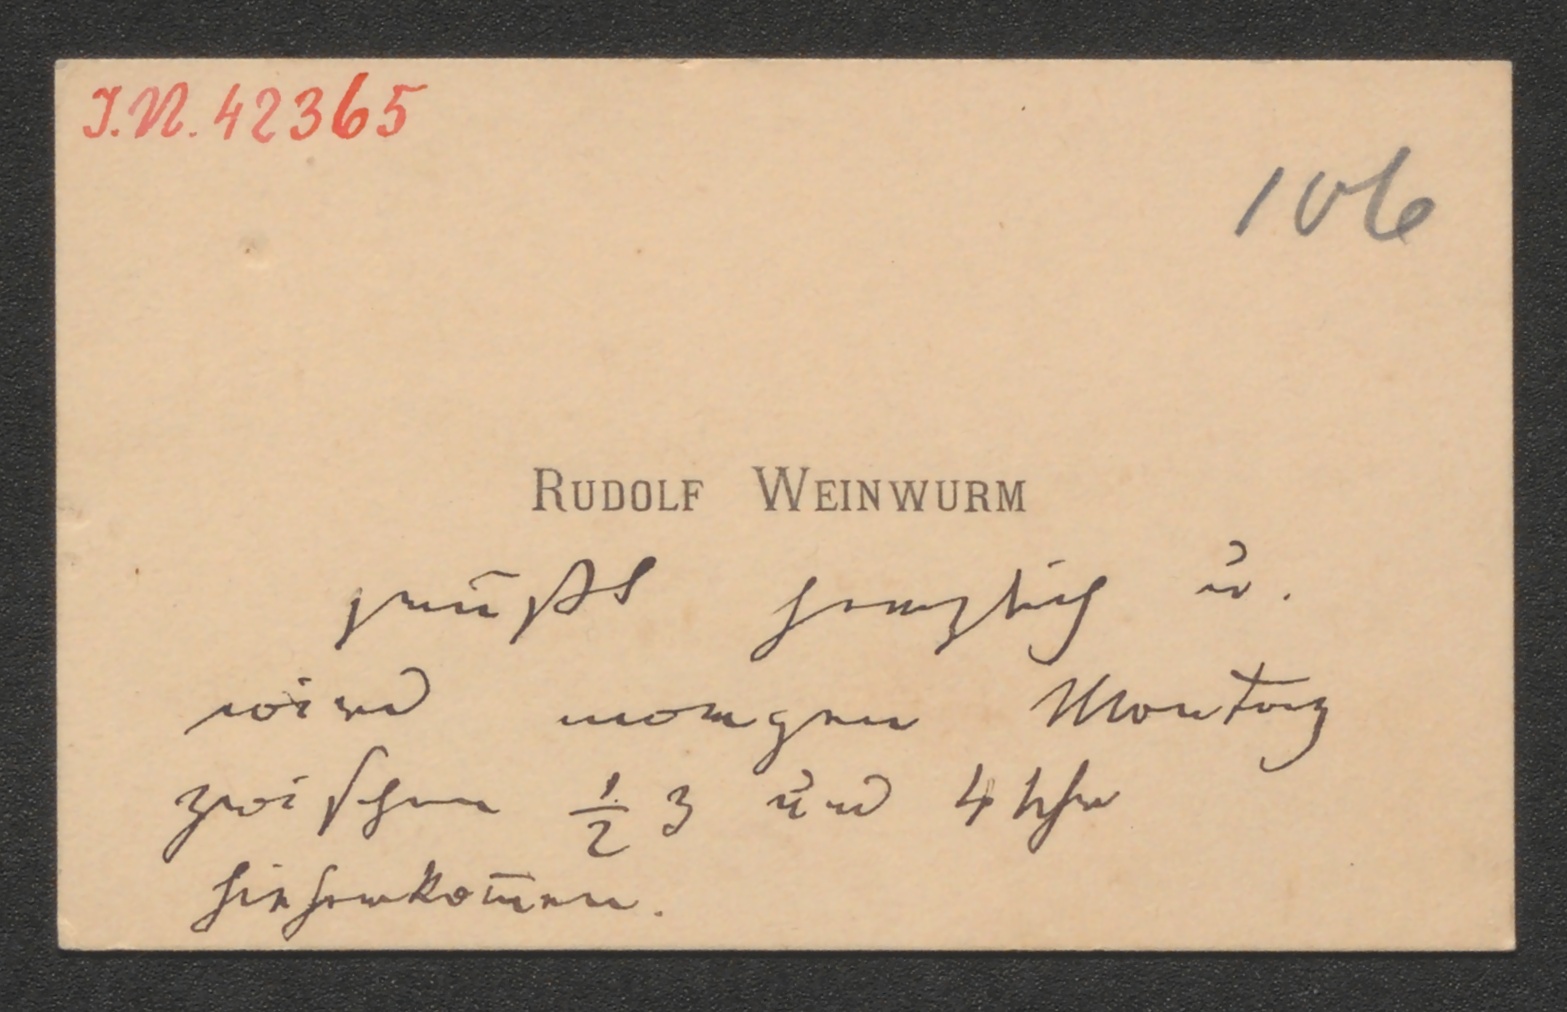 I.N. 42365
106
RUDOLF WEINWURM
grüßt herzlich u.
wird morgen Montag
zwischen 1/2 3 und 4 Uhr
hieherkom̅en.